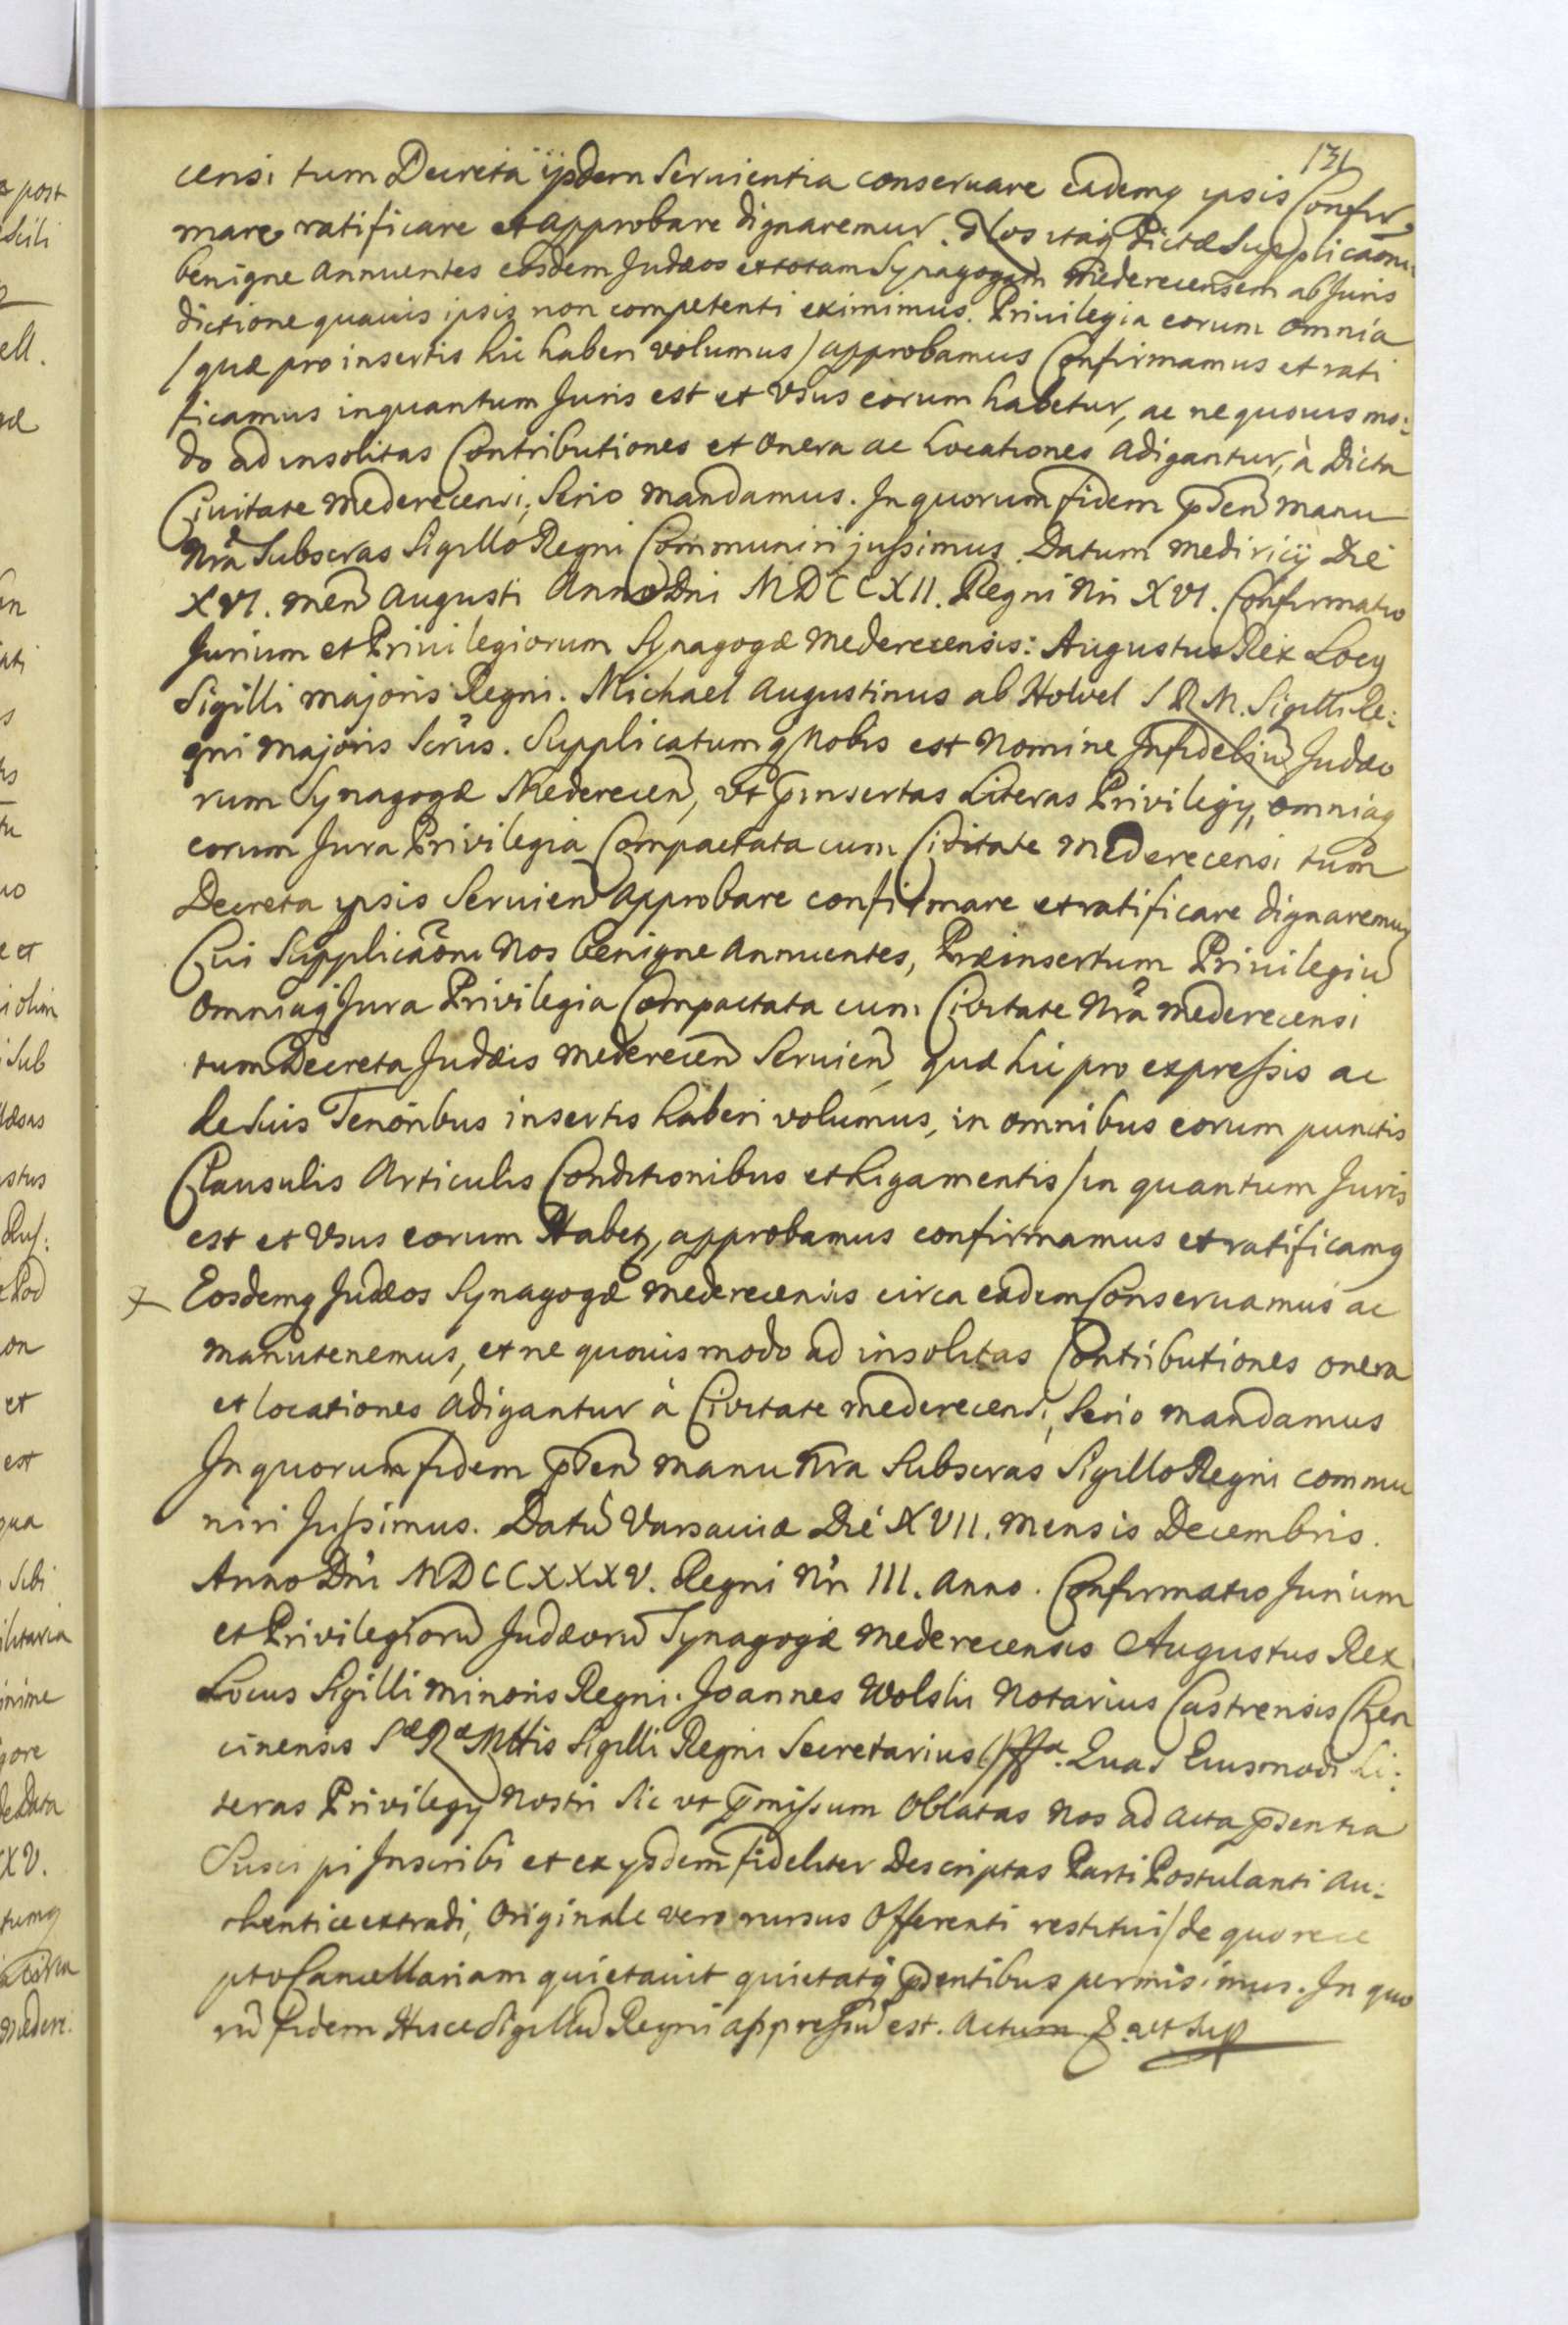 131
censi tum Decreta ijsdem Seruientia conseruare eademq ipsis Confir
mare ratificare et approbare dignaremur. Nos itaq Dictæ Supplicaōni
benigne Annuentes eosdem Judæos et totam Synagogam Miederecensem ab Juris
dictione quavis ipsis non competenti eximimus. Privilegia eorum omnia
/quæ pro insertis hic haberi volumus/ approbamus Confirmamus et rati
ficamus inquantum Juris est et Vsus eorum habetur, ac ne quovis mo:
do ad insolitas Contributiones et Onera ac Locationes Adigantur, à Dicta
Civitate Mederecensi, Serio Mandamus. In quorum fidem pñtem manu
Nrã Subscras Sigillo Regni Communiri jussimus. Datum Mediricij Die
XVI. Men Augusti Anno Dni MDCCXII. Regni Nri XVI. Confirmatio
Jurium et Privilegiorum Synagogæ Mederecensis: Augustus Rex Locq
Sigilli majoris Regni. Michael Augustinus ab Holvel S R M. Sigilli Re:
gni Majoris Scrûs. Supplicatum q Nobis est Nomine Infidelium Judæo
rum Synagogæ Miederecen, vt p̄insertas Literas Privilegij, omniaq
eorum Jura Privilegia Compactata cum Civitate Mederecensi tum
Decreta ipsis Servien approbare confirmare et ratificare dignaremur
Cui Supplicaōni Nos benigne Annuentes, Præinsertum Privilegiū
Omniaq Jura Privilegia Compactata cum Civitate Nrã Mederecensi
tum Decreta Judæis Mederecen Servien, quæ hic pro expressis ac
de suis Tenoribus insertis haberi volumus, in omnibus eorum punctis
Clausulis Articulis Conditionibus et Ligamentis /in quantum Juris
est et Vsus eorum Habetr, approbamus confirmamus et ratificamq
Eosdemq Judæos Synagogæ Mederecensis circa eadem Conservamus ac
manutenemus, et ne quovis modo ad insolitas Contributiones onera
et locationes adigantur à Civitate Mederecensi, Serio mandamus
In quorum fidem pñtem manu nrã Subscras Sigillo Regni commu
niri Jussimus. Datū Varsaviæ Die XVII. Mensis Decembris.
Anno Dni MDCCXXXV. Regni Nri III. Anno. Confirmatio Jurium
et Privilegiorū Judæorū Synagogæ Mederecensis Augustus Rex
Locus Sigilli Minoris Regni. Joannes Wolski Notarius Castrensis Chen
cinensis Sæ Ræ Mttis Sigilli Regni Secretarius. Quas Eiusmodi Li:
teras Privilegij Nostri Sic vt p̄missum Oblatas Nos ad Acta p̄sentia
Suscipi Inscribi et ex ijsdem fideliter Descriptas Parti Postulanti Au:
thentice extradi, Originale vero rursus Offerenti restitui /de quo rece
pto Cancellariam quietavit quietatq p̄sentibus permisimus. In quo
rū fidem Hisce Sigillū Regni appressū est. Actum &. ut Sup